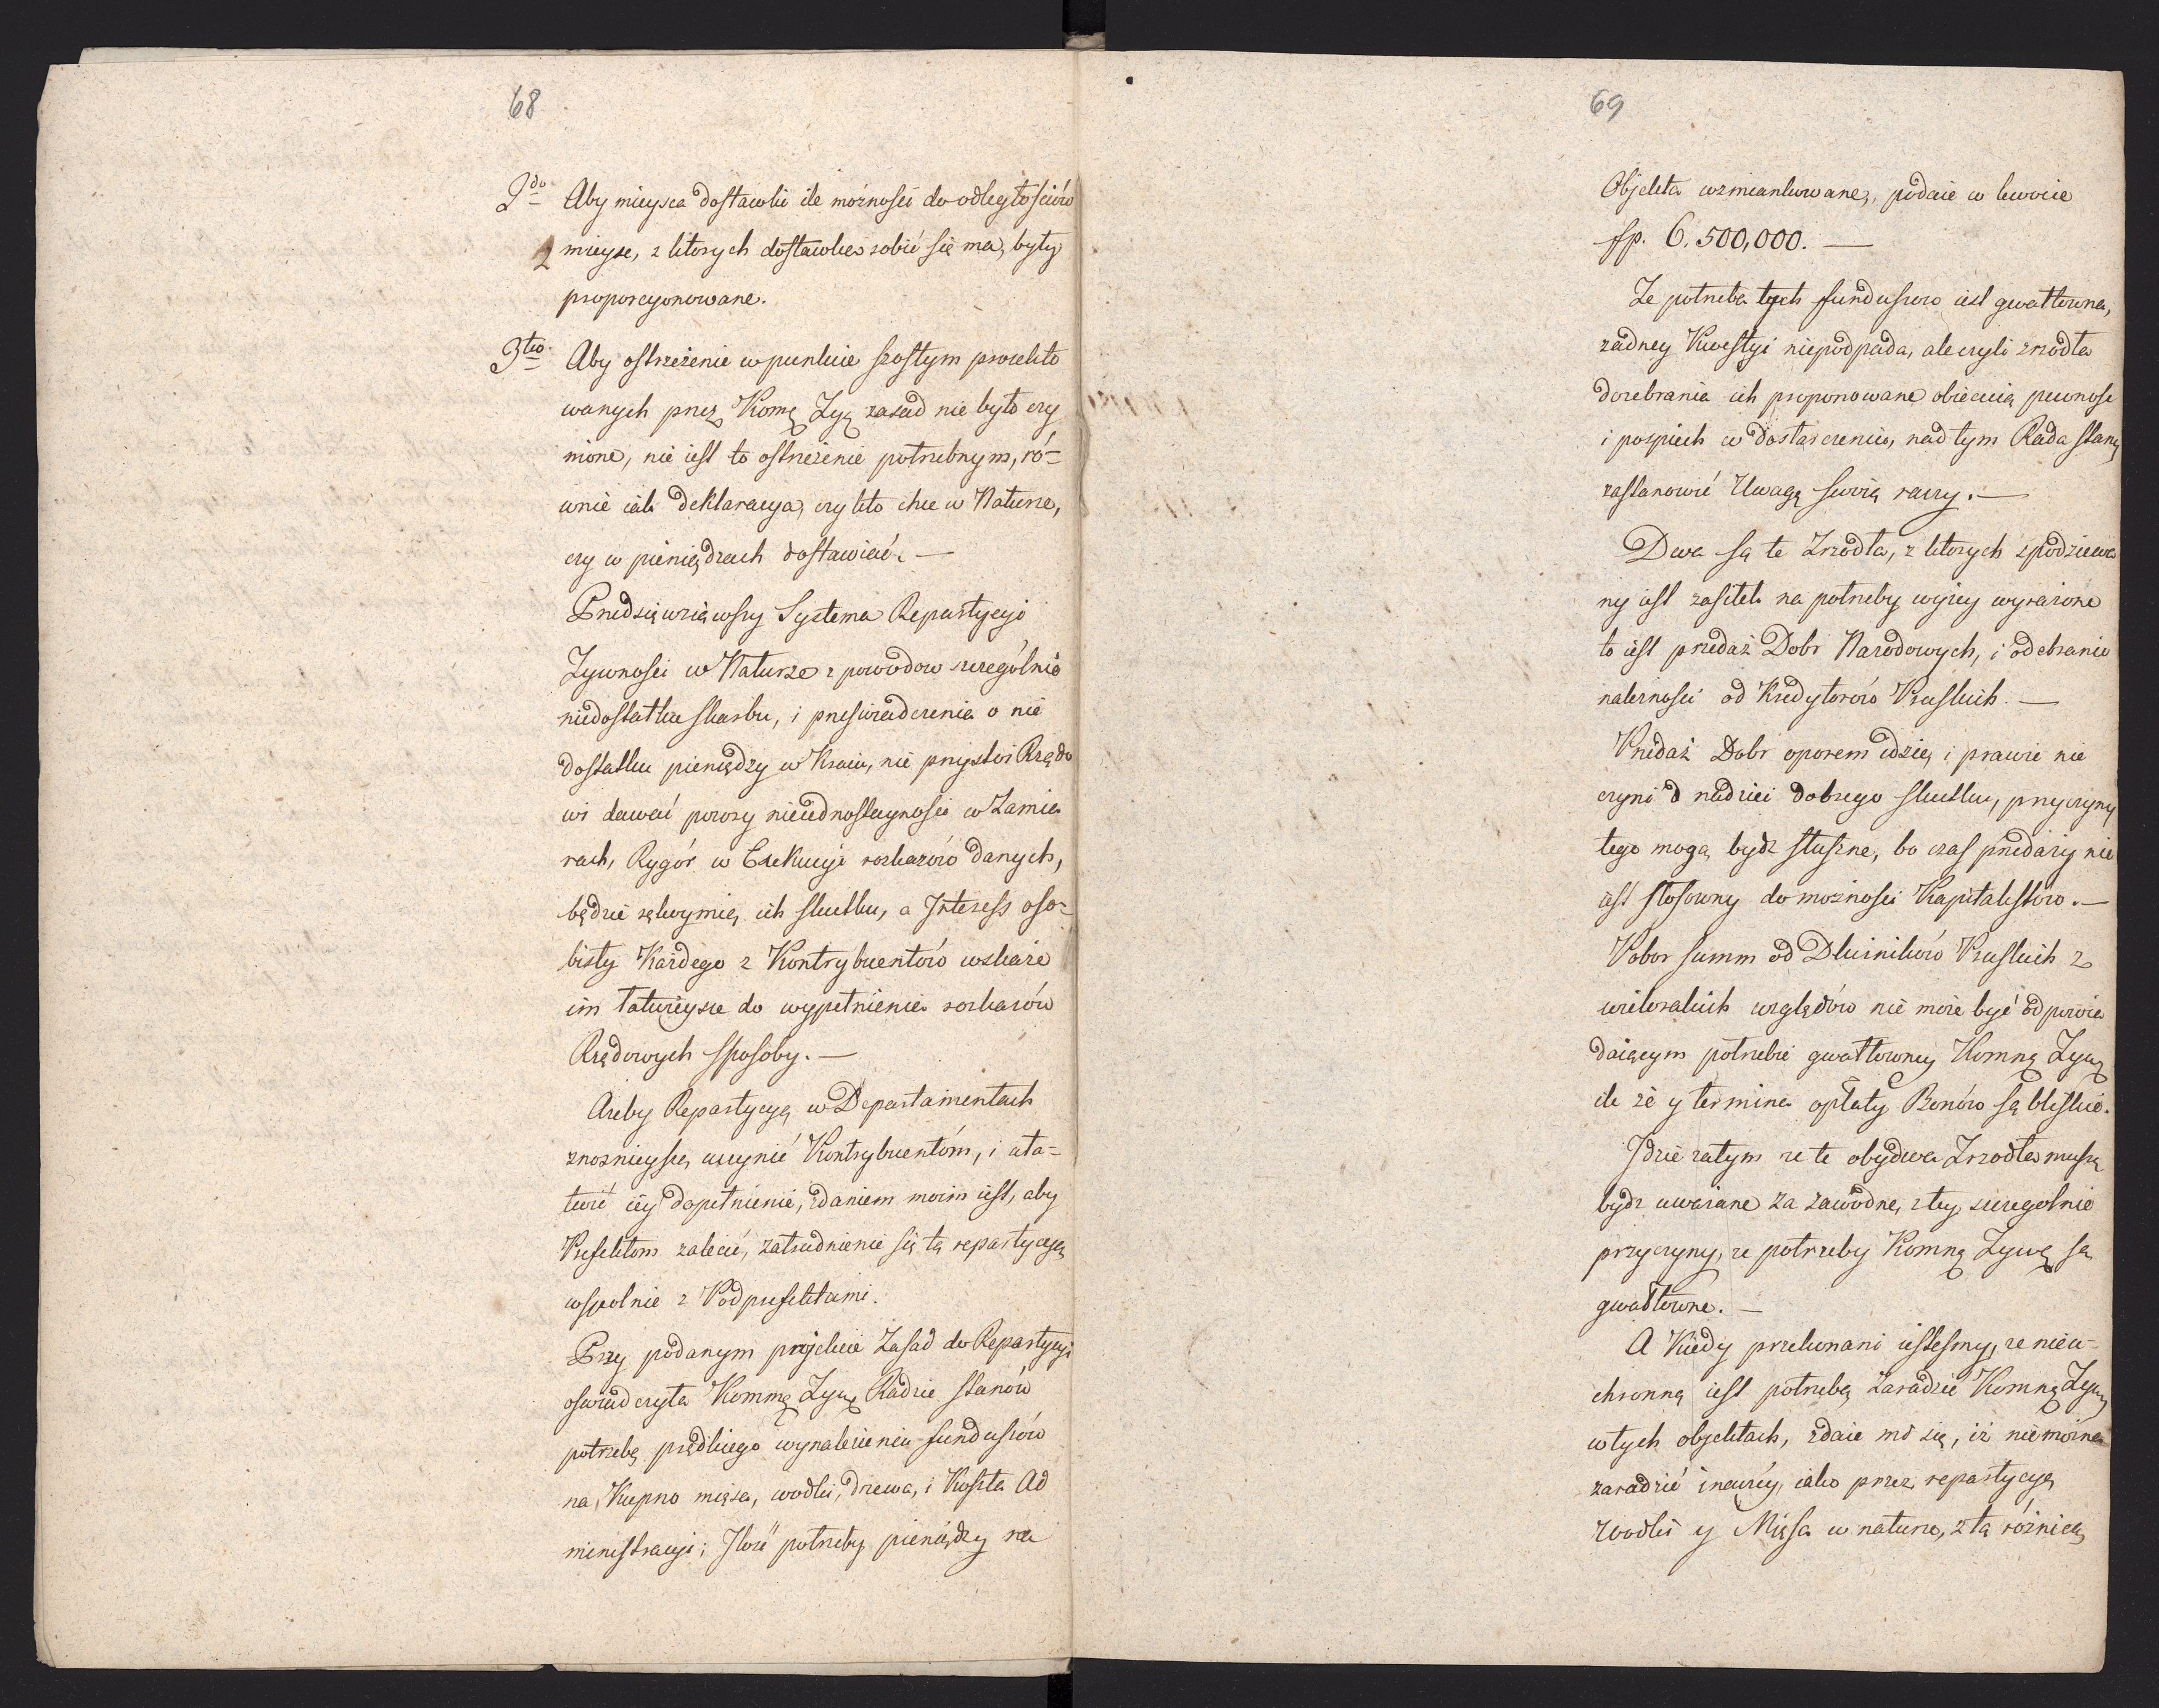 68
2do Aby mieysca dostawki ile możności do odległościów
mieysc, z ktorych dostawka robić się ma, były
proporcyonowane.
3tio. Aby ostrzeżenie w punkcie szostym proiekto
wanych przez Komę Zyą zasad nie było czy
nione, nie iest to ostrzeżenie potrzebnym, ró=
wnie iak deklaracya, czy kto chce w Naturze,
czy w pieniądzach dostawiać. —
Przedsięwziąwszy Systema Repartycyi
Zywnosci w Naturze z powodow szczególnie
niedostatku skarbu, i przeświadczenia o nie
dostatku pieniędzy w Kraiu, nie przystoi Rządo
wi dawać pozory nieiednostaynosci w Zamia
rach, Rygór w Exekucyi rozkazów danych,
będzie rękoymią ich skutku, a Jnteress oso=
bisty Każdego z Kontrybuentów wskaże
im łatwieysze do wypełnienia rozkazów
Rządowych sposoby. —
Azeby Repartycyą w Departamentach
znośnieyszą uczynić Kontrybuentóm, i uła=
twić iéy dopełnienie, zdaniem moim iest, aby
Prefektom zalecić, zatrudnienie się tą repartycyą
wspolnie z Podprefektami.
Przy podanym projekcie Zasad do Repartycyi
oswiadczyła Kommę Zyw Radzie stanów
potrzebę prędkiego wynalezienia funduszów
na Kupno mięsa, wodki, drzewa, i Koszta Ad
ministracyi; Jlość potrzeby pieniędzy na
69
Objekta wzmiankowane, podaie w kwocie
fp. 6.500,000. —
Ze potrzeba tych funduszow iest gwałtowna,
zadney Kwestyi niepodpada, ale czyli zrzodła
dozebrania ich proponowane obiecuią pewnosc
i pospiech w dostarczeniu, nad tym Rada stanu
zastanowić Uwagę swoią raczy. —
Dwa są te Zrzodła, z ktorych spodziewa
ny iest zasiłek na potrzeby wyzey wyrażone
to iest przedaż Dobr Narodowych, i odebranie
naleznosci od Kredytorów Pruskich. —
Przedaż Dobr oporem idzie, i prawie nie
czyni nadziei dobrego skutku, przyczyny
tego mogą bydz słuszne, bo czas przedaży nie
iest stosowny do możnosci Kapitalistów. —
Pobor summ od Dłużników Pruskich z
wielorakich względów nie może być odpowia
daiącym potrzebie gwałtowney Komną Zyw
ile że y termina opłaty Bonów są bliskie.
Jdzie zatym ze te obydwa Zrzodła muszą
bydz uważane za zawodne, z tey szczegolnie
przyczyny, ze potrzeby Komną Zywą są
gwałtowne. —
A Kiedy przekonani iestesmy, ze nieu=
chronną iest potrzebą Zaradzić Komną Zyw
w tych objektach, zdaie mi się, iż nie można
zaradzić inaczey, iako przez repartycyą
Wodki y Mięsa w naturze, z tą różnicą